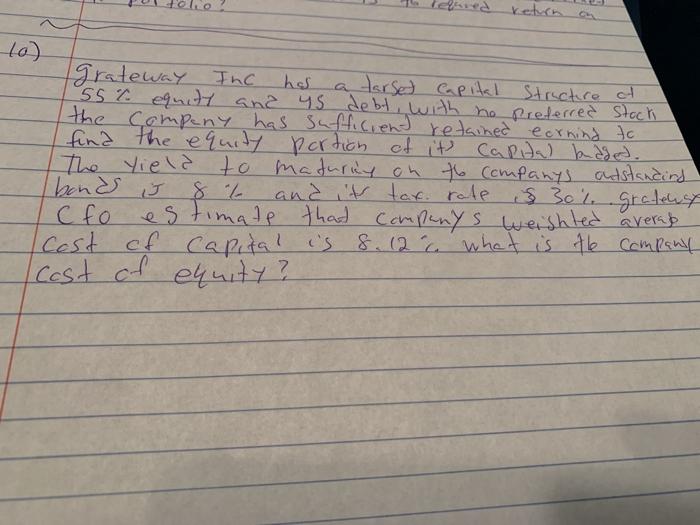 folio?
to required return on
10)
Grateway Inc has a target capital structure of
55% equity and 45 debt, with no preferred stock
the company has sufficient retained earning to
find the equity portion of its capital budget.
The yield to maturity on the companys outstanding
bonds is 8% and its tax rate is 30%. grateway
CFO estimate that companys weighted average
cost of capital is 8.12%. what is the company
cost of equity?